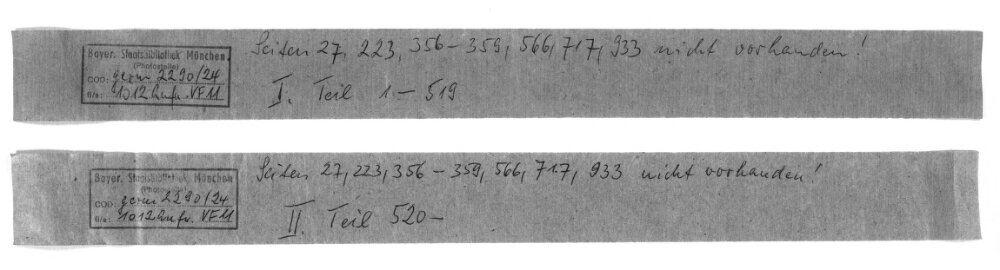 Seiten 27, 223, 356–359, 566, 717, 933 nicht vorhanden!
Bayer. Staatsbibliothek München
(Photostelle)
COD: germ 2290/24
fl/a: 1012 Aufn. VF 11
I. Teil 1–519
Seiten 27, 223, 356–359, 566, 717, 933 nicht vorhanden!
Bayer. Staatsbibliothek München
COD: germ 2290/24
fl/a: 1012 Aufn. VF 11
II. Teil 520–